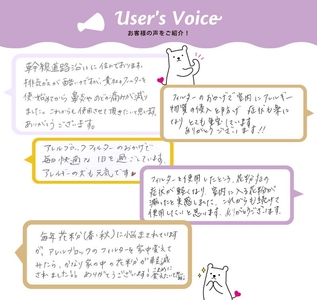 User's Voice
お客様の声をご紹介!
幹線道路沿いに住んでおります。
排気ガスが酷いのですが、貴社のフィルターを
使い始めてから鼻炎やのどの痛みが減り
ました。これからも使用させて頂きたいと思います。
ありがとうございます。
フィルターのおかげで室内にアレルギー
物質の侵入を防げ 症状も楽に
なり とても重宝しています
ありがとうございます!!
アレルブロックフィルターのおかげで
毎日快適な1日を過ごしています。
アレルギーの犬も元気です♥
フィルターを使用したところ、花粉の
症状が軽くなり、室内に入る花粉が
減ったと実感しました。これからも続けて
使用していこうと思います。ありがとうございます。
毎年花粉(春・秋)に悩まされています
が、アレルブロックのフィルターを家中変えて
みたら、かなり家の中の花粉が軽減
されました!!ありがとうございます。